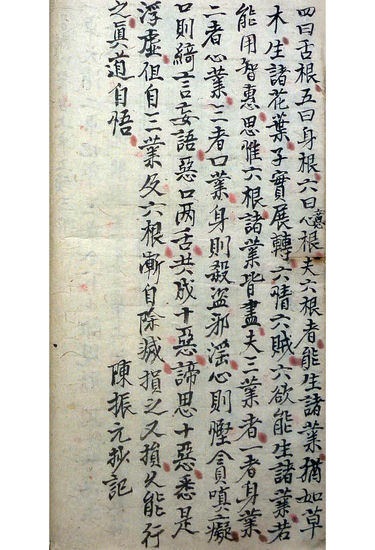 四曰舌根五曰身根六曰意根夫六根者能生諸業猶如草
木生諸花葉子實展轉六情六賊六欲能生諸業若
能用智惠思惟六根諸業皆盡夫三業者一者身業
二者心業三者口業身則殺盜邪淫心則慳貪嗔癡
口則綺言妄語惡口两舌共成十惡諦思十惡悉是
浮虛但自三業及六根漸自除滅損之又損久能行
之眞道自悟
陳振元抄記